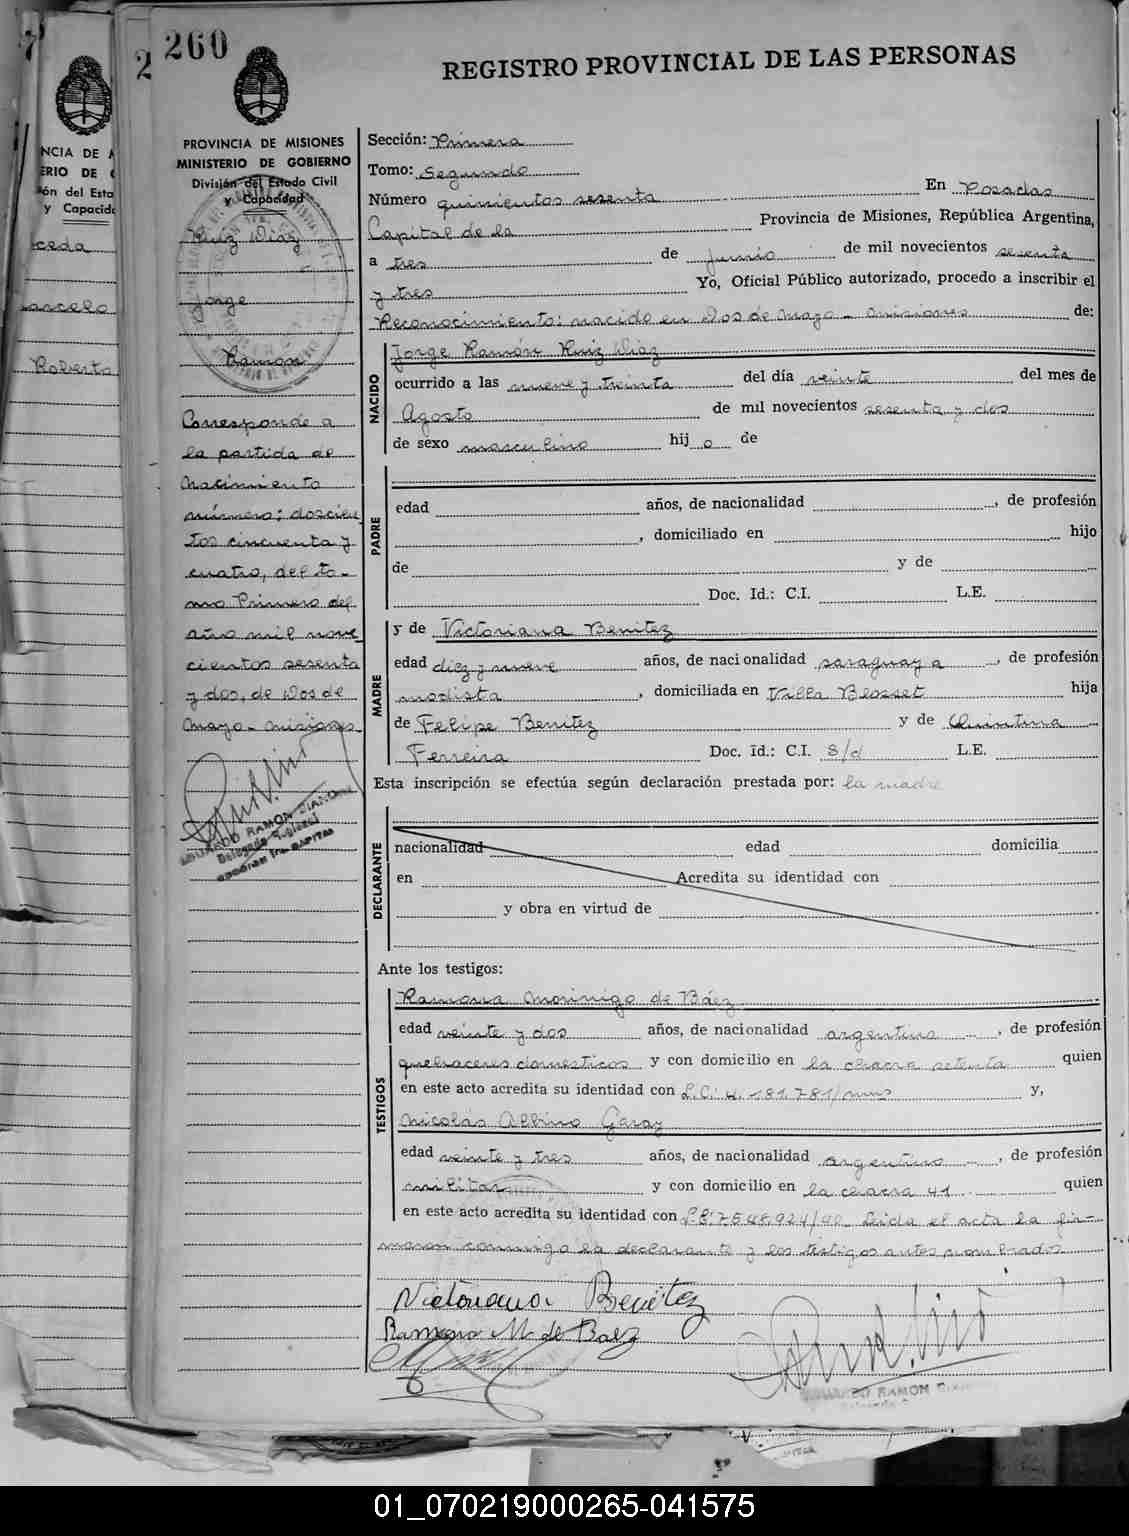 260
REGISTRO PROVINCIAL DE LAS PERSONAS
PROVINCIA DE MISIONES
MINISTERIO DE GOBIERNO
División del Estado Civil
y Capacidad
Ruiz Diaz
Jorge
Ramon
Corresponde a
la partida de
nacimiento
número: doscien
tos cincuenta y
cuatro, del to-
mo Primero del
año mil nove
cientos sesenta
y dos, de Dos de
Mayo - Misiones
EDUARDO RAMON
Sección: Primera
Tomo: Segundo
Número quinientos sesenta En Posadas
Capital de la Provincia de Misiones, República Argentina,
a tres de junio de mil novecientos sesenta
y tres Yo, Oficial Público autorizado, procedo a inscribir el
Reconocimiento: nacido en Dos de Mayo - Misiones de:
NACIDO
Jorge Ramón Ruiz Diaz
ocurrido a las nueve y treinta del día veinte del mes de
Agosto de mil novecientos sesenta y dos
de sexo masculino hij o de
PADRE
edad años, de nacionalidad , de profesión
, domiciliado en hijo
de y de
Doc. Id.: C.I. L.E.
MADRE
y de Victoriana Benitez
edad diez y nueve años, de nacionalidad paraguaya , de profesión
modista , domiciliada en Villa Blosset hija
de Felipe Benitez y de Quintina
Ferreira Doc. id.: C.I. S/d L.E.
Esta inscripción se efectúa según declaración prestada por: la madre
DECLARANTE
nacionalidad edad domicilia
en Acredita su identidad con
y obra en virtud de
Ante los testigos:
TESTIGOS
Ramona Morinigo de Báez
edad veinte y dos años, de nacionalidad argentina , de profesión
quehaceres domesticos y con domicilio en la chacra setenta quien
en este acto acredita su identidad con L.C. 4.181.781/mns y,
Nicolás Albino Garay
edad veinte y tres años, de nacionalidad argentino , de profesión
militar y con domicilio en la chacra 41 quien
en este acto acredita su identidad con Leida el acta la fir-
maron conmigo la declarante y los testigos antes nombrados
Victoriana Benitez
Ramona M. de Baez
EDUARDO RAMON
NCIA DE
ERIO DE
ón del Esta
y Capacid
ceda
arcelo
Roberto
01_070219000265-041575